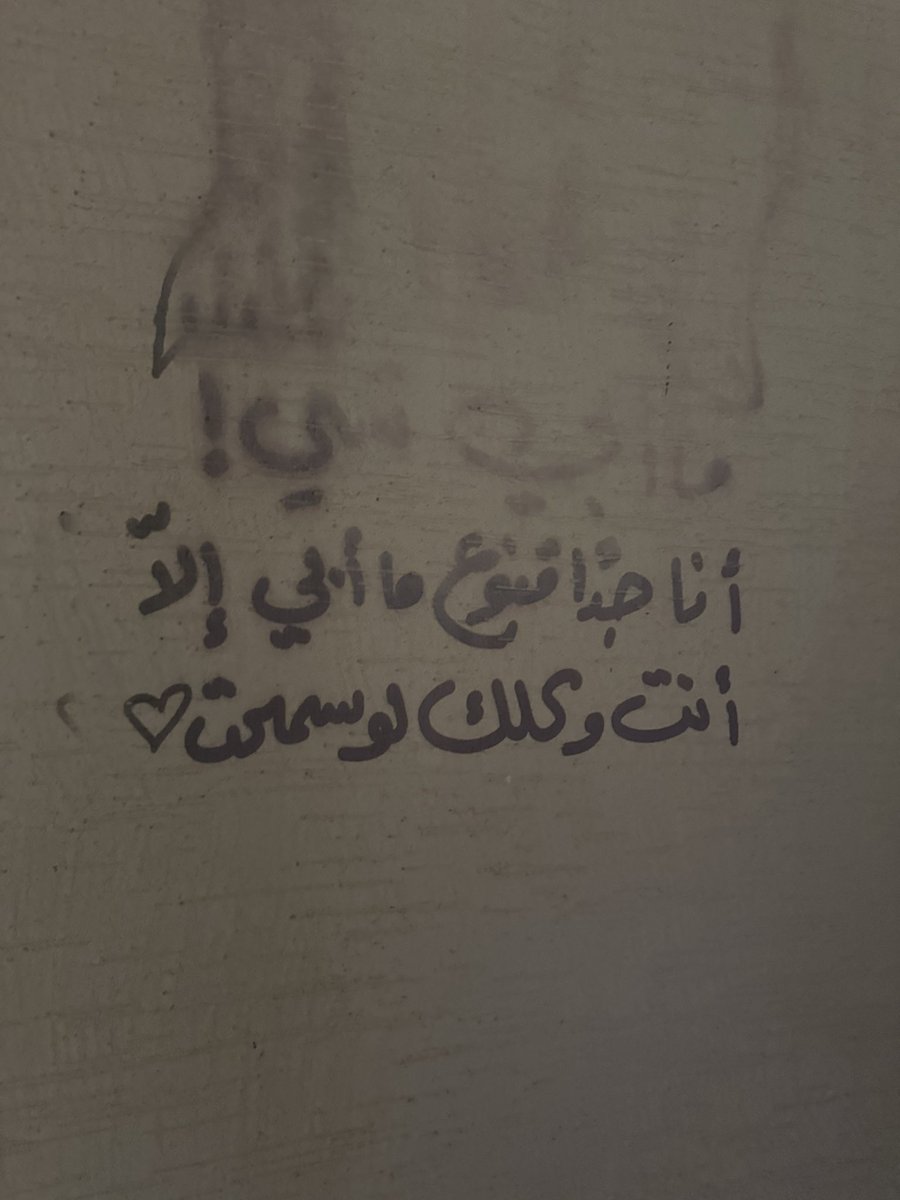 ما أبي شي!
أنا جدًا قنوع ما أبي إلّا
أنت وكلك لو سمحت♡